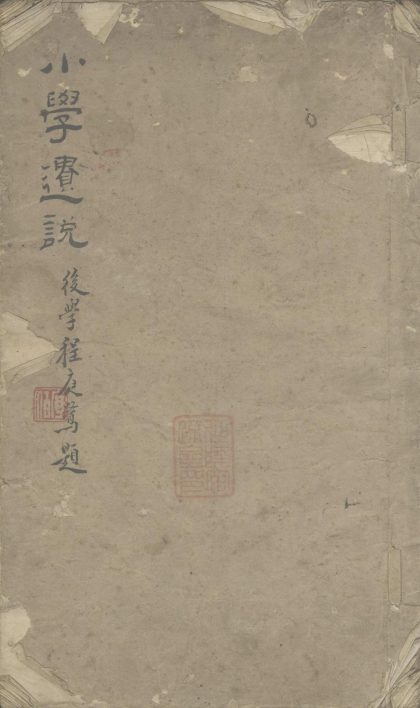 小學遺說
後學程庭鷺題